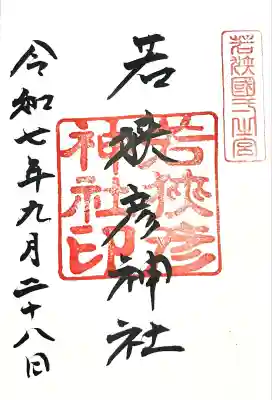 若狭國一之宮
若狭彦神社
若狭彦
神社印
令和七年九月二十八日